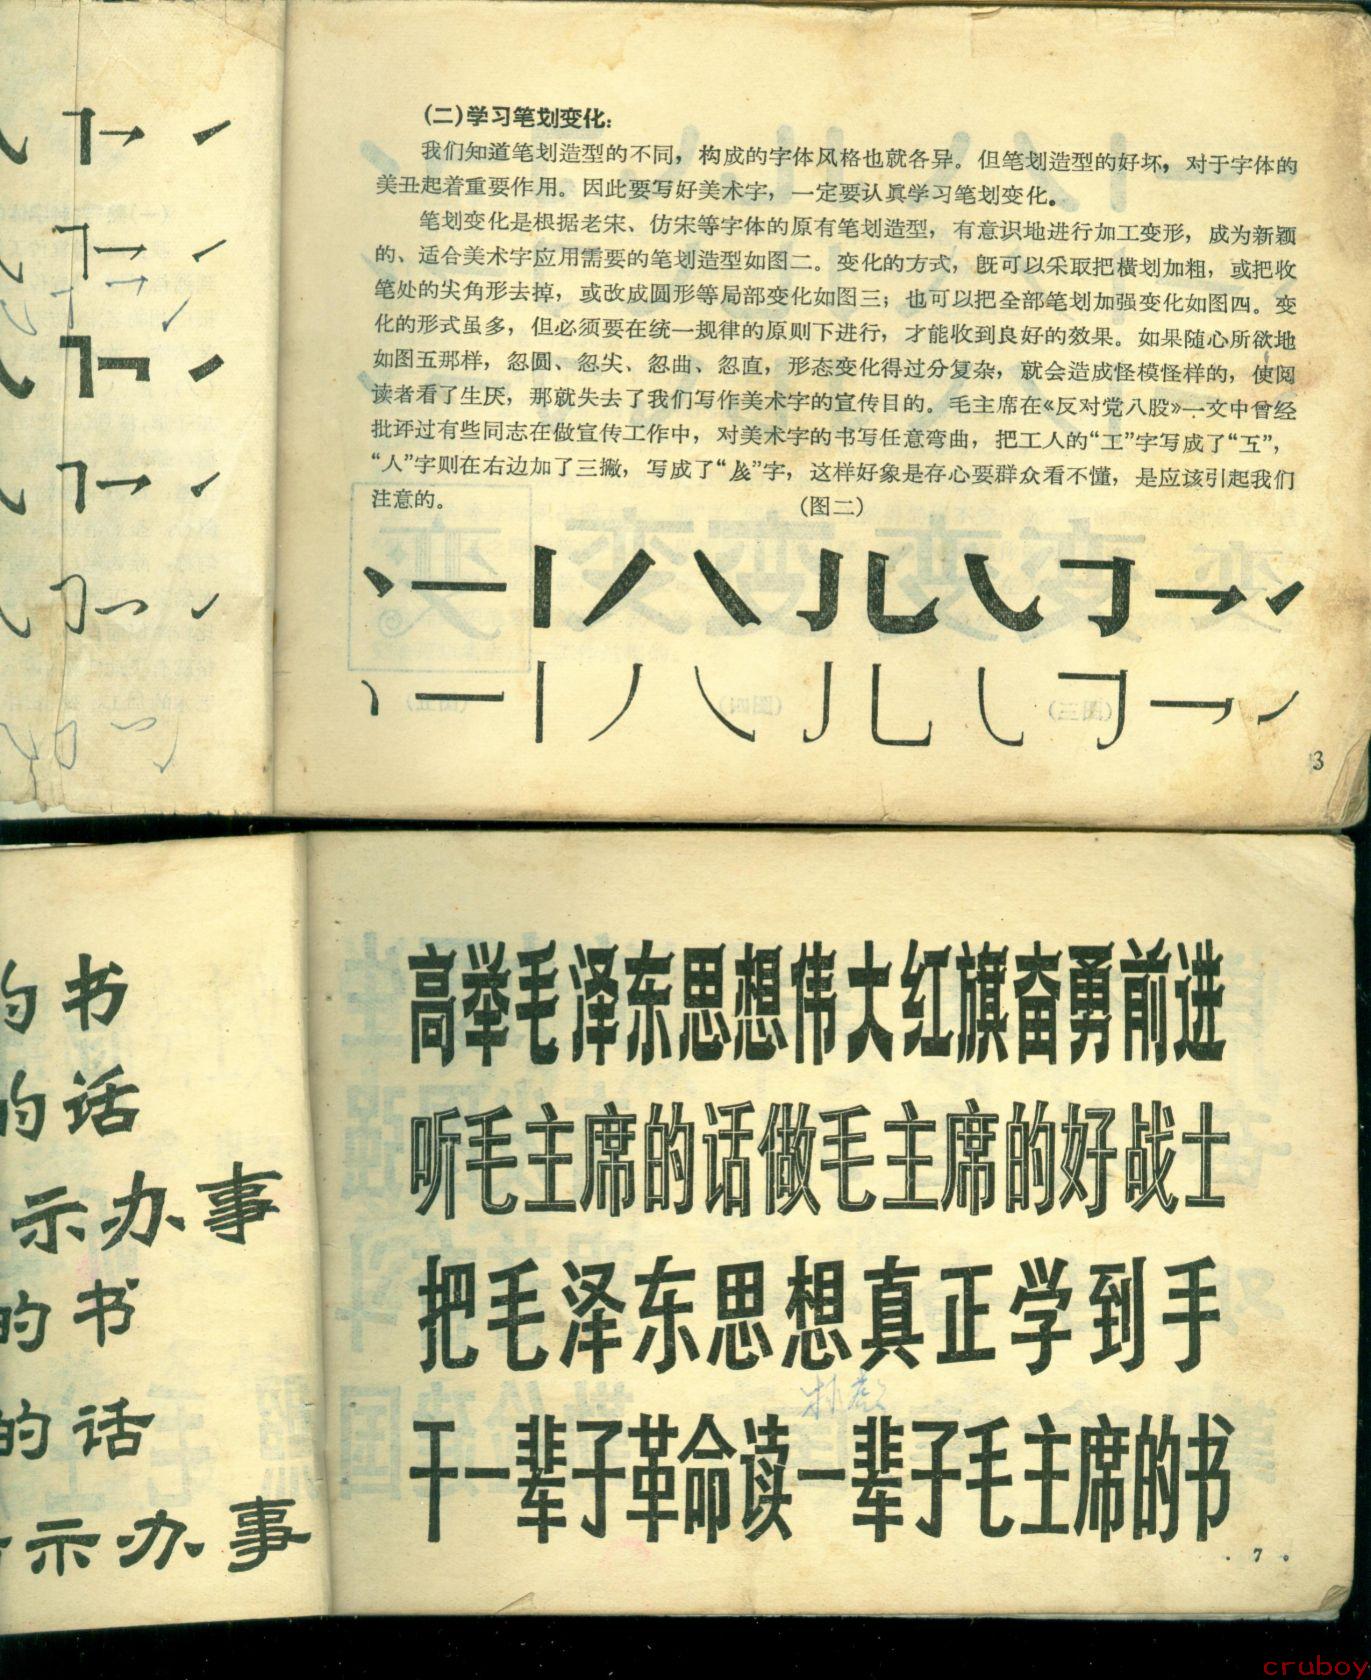 (二)学习笔划变化:
我们知道笔划造型的不同，构成的字体风格也就各异。但笔划造型的好坏，对于字体的
美丑起着重要作用。因此要写好美术字，一定要认真学习笔划变化。
笔划变化是根据老宋、仿宋等字体的原有笔划造型，有意识地进行加工变形，成为新颖
的、适合美术字应用需要的笔划造型如图二。变化的方式，既可以采取把横划加粗，或把收
笔处的尖角形去掉，或改成圆形等局部变化如图三；也可以把全部笔划加强变化如图四。变
化的形式虽多，但必须要在统一规律的原则下进行，才能收到良好的效果。如果随心所欲地
如图五那样，忽圆、忽尖、忽曲、忽直，形态变化得过分复杂，就会造成怪模怪样的，使阅
读者看了生厌，那就失去了我们写作美术字的宣传目的。毛主席在《反对党八股》一文中曾经
批评过有些同志在做宣传工作中，对美术字的书写任意弯曲，把工人的“工”字写成了“互”，
“人”字则在右边加了三撇，写成了“ ”字，这样好象是存心要群众看不懂，是应该引起我们
注意的。
(图二)
3
的书
的话
示办事
的书
的话
示办事
高举毛泽东思想伟大红旗奋勇前进
听毛主席的话做毛主席的好战士
把毛泽东思想真正学到手
干一辈子革命读一辈子毛主席的书
· 7 ·
cruboy